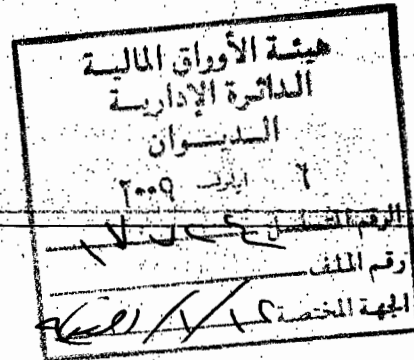 هيئة الأوراق المالية
الدائرة الإدارية
الديوان
٦ ايلول ٢٠٠٩
الرقم المتسلسل
رقم الملف
الجهة المختصة